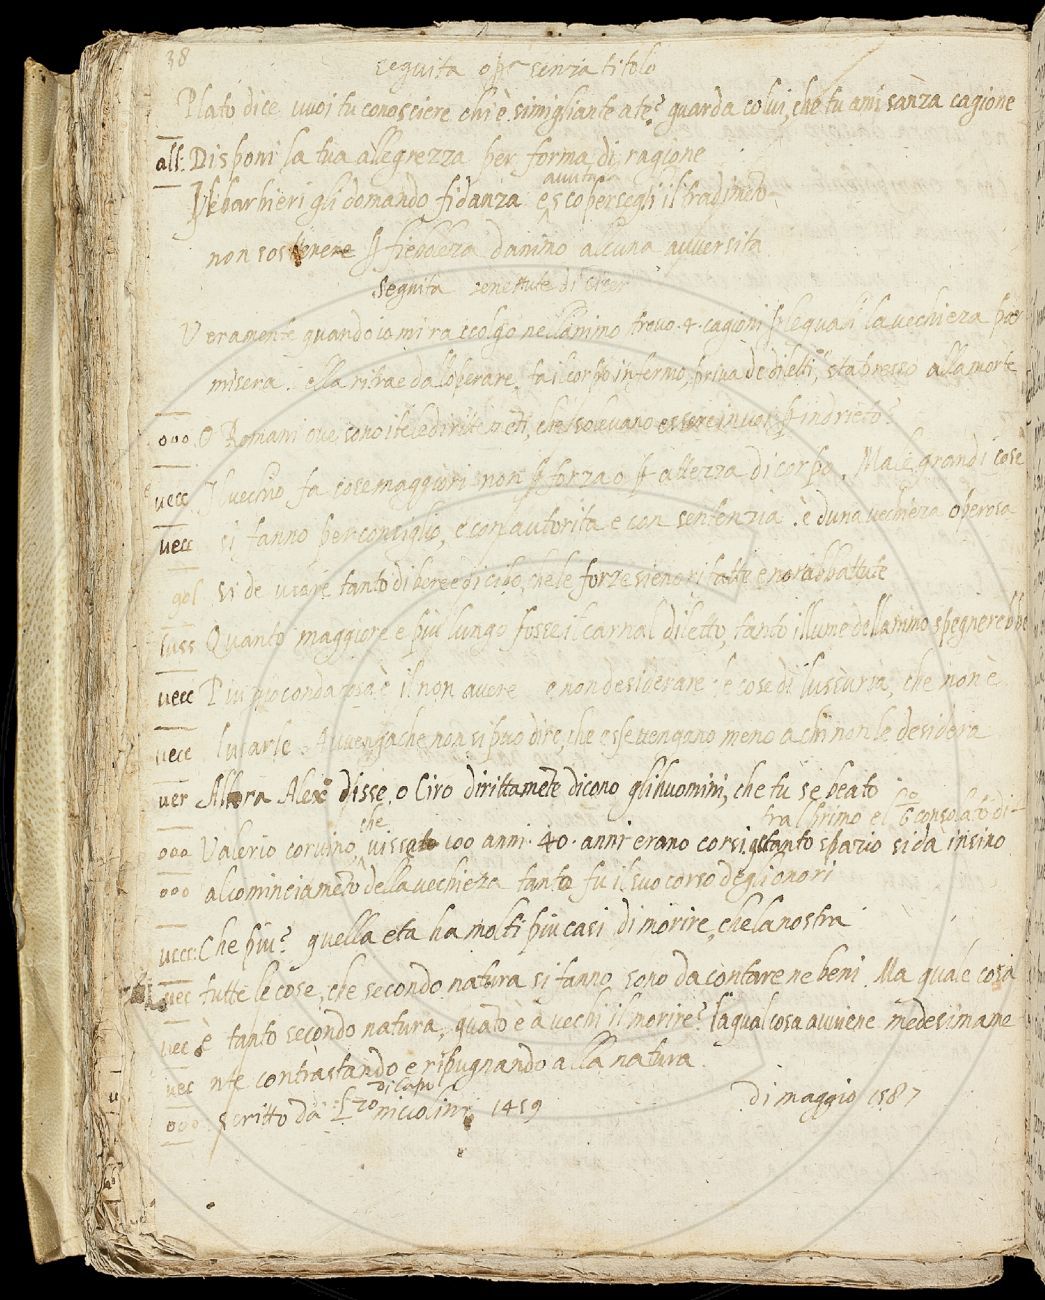 38
seguita op.ª senza titolo
Plato dice vuoi tu conosciere chi è simigliante a te? guarda colui, che tu ami sanza cagione
all: Disponi la tua allegrezza per forma di ragione
barbieri gli domando fidanza e scopersegli il tradimeto
avuta
non sostenere fievoleza danimo alcuna avversita
Seguita senettute di Cicer
Veramente quando io mi raccolgo nellanimo trovo .4. cagioni p lequali la vechieza par
misera. ella ritrae dalloperare, fa il corpo infermo, priva de diletti, sta presso alla morte
ooo O Romani ove sono ite le diritte meti, che solevano essere in voi p indrieto?
vecc Il vechio fa cose maggiori non p forza o p allezza di corpo. Ma le grandi cose
vecc si fanno per consiglio, e con autorita e con sentenzia. è duna vechieza operosa
gol si de usare tanto di bere e di cibo, che le forze sieno rifatte e non abbattute
luss Quanto maggiore e piu lungo fosse il carnal diletto, tanto il lume dellanimo spegnerebbe
vecc Piu gioconda cosa è il non avere e non desiderare le cose di lussuria, che non è
vecc lusarle. Avvenga che non si puo dire, che esse vengano meno a chi non le desidera
ver Allora Alexº disse, o Ciro dirittamete dicono gli huomini, che tu se beato
fra l primo el 6º consolato di
ooo Valerio corvino, che vissuto 100 anni .40. anni erano corsi. quanto spazio si da insino
ooo al cominciameto della vechieza tanto fu il suo corso degli onori
vecc: Che piu? quella eta ha molti piu casi di morire, che la nostra
vec tutte le cose, che secondo natura si fanno sono da contare ne beni. Ma quale cosa
vec è tanto secondo natura, quato è a vechi il morire? la qual cosa avviene medesimame
vec nte contrastando e ripugnando alla natura
ooo scritto da miccolini 1459 di maggio 1587